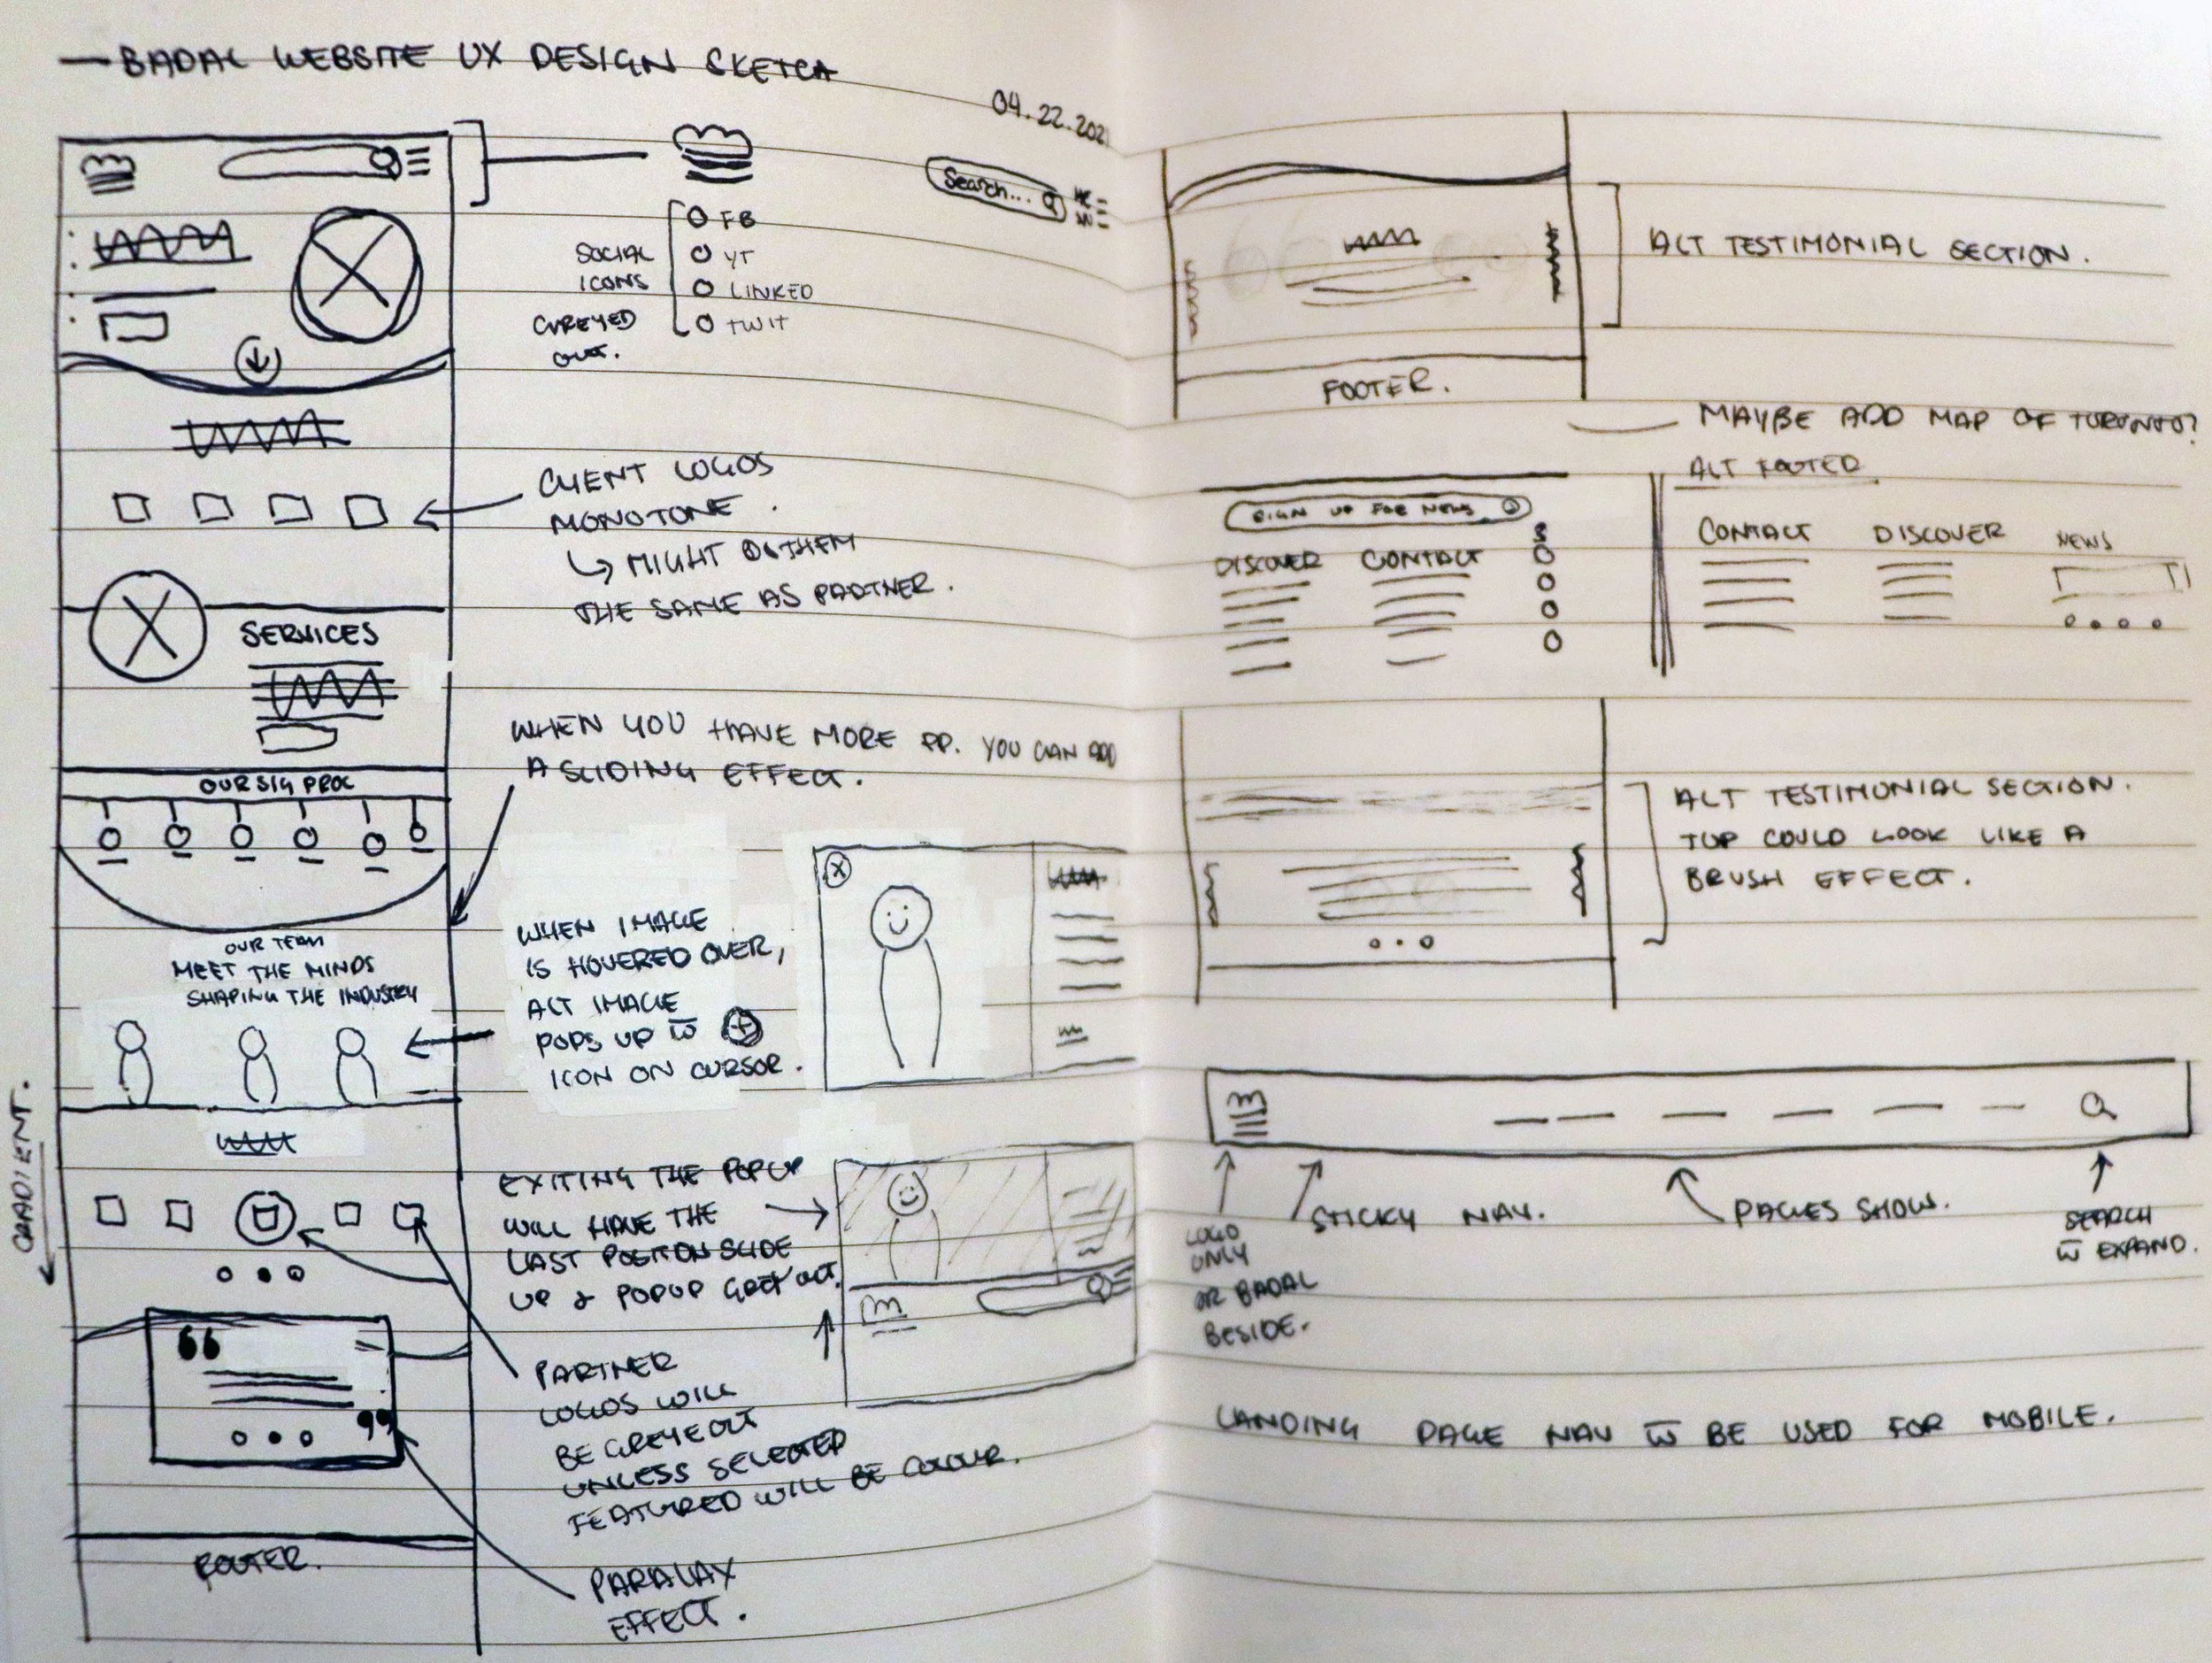 — BADAL WEBSITE UX DESIGN SKETCH
04.22.202
Search...
SOCIAL
ICONS
GREYED
OUT.
FB
YT
LINKED
TWIT
CLIENT LOGOS
MONOTONE.
↳ MIGHT THEM
THE SAME AS PARTNER.
SERVICES
OUR SIG PROC
WHEN YOU HAVE MORE PP. YOU CAN ADD
A SLIDING EFFECT.
OUR TEAM
MEET THE MINDS
SHAPING THE INDUSTRY
WHEN IMAGE
IS HOVERED OVER,
ALT IMAGE
POPS UP W̅ ⊕
ICON ON CURSOR.
GRADIENT.
EXITING THE POPUP
WILL HAVE THE
LAST POSITION SLIDE
UP & POPUP GREY OUT.
PARTNER
LOGOS WILL
BE GREYEOUT
UNLESS SELECTED
FEATURED WILL BE COLOUR.
“
”
FOOTER.
PARALAX
EFFECT.
ALT TESTIMONIAL SECTION.
FOOTER.
MAYBE ADD MAP OF TORONTO?
SIGN UP FOR NEWS
DISCOVER CONTACT
S
ALT FOOTER
CONTACT DISCOVER NEWS
ALT TESTIMONIAL SECTION.
TOP COULD LOOK LIKE A
BRUSH EFFECT.
LOGO
ONLY
OR BADAL
BESIDE.
STICKY NAV.
PAGES SHOW.
SEARCH
W̅ EXPAND.
LANDING PAGE NAV W̅ BE USED FOR MOBILE.